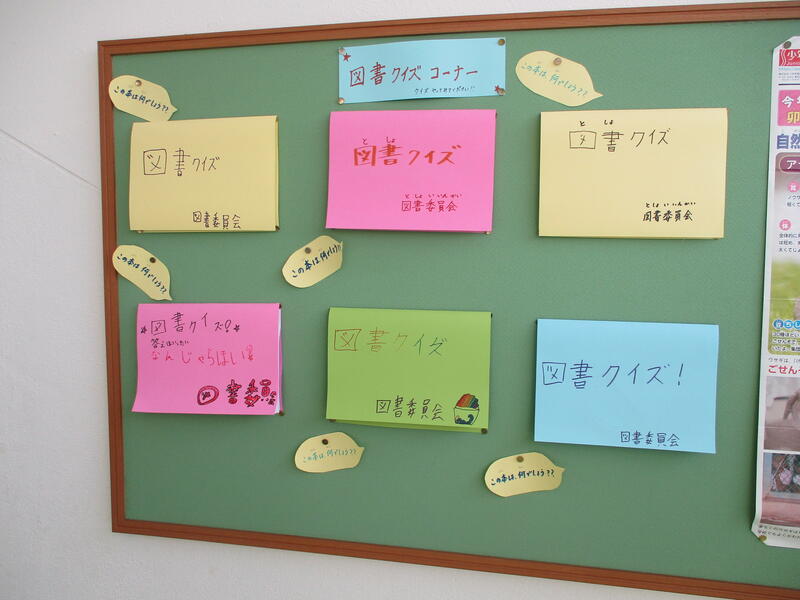 図書クイズコーナー
クイズ やってみてください!!
この本は、何でしょう??
この本は、何でしょう??
図書クイズ
図書委員会
としょ
図書クイズ
としょいいんかい
図書委員会
としょ
図書クイズ
としょいいんかい
図書委員会
この本は、何でしょう??
この本は、何でしょう!!
図書クイズ!
答えはいったい
なんじゃらほい
書委員
図書クイズ
図書委員会
図書クイズ!
図書委員会
この本は、何でしょう??
この本は、何でしょう??
自然
ごせん